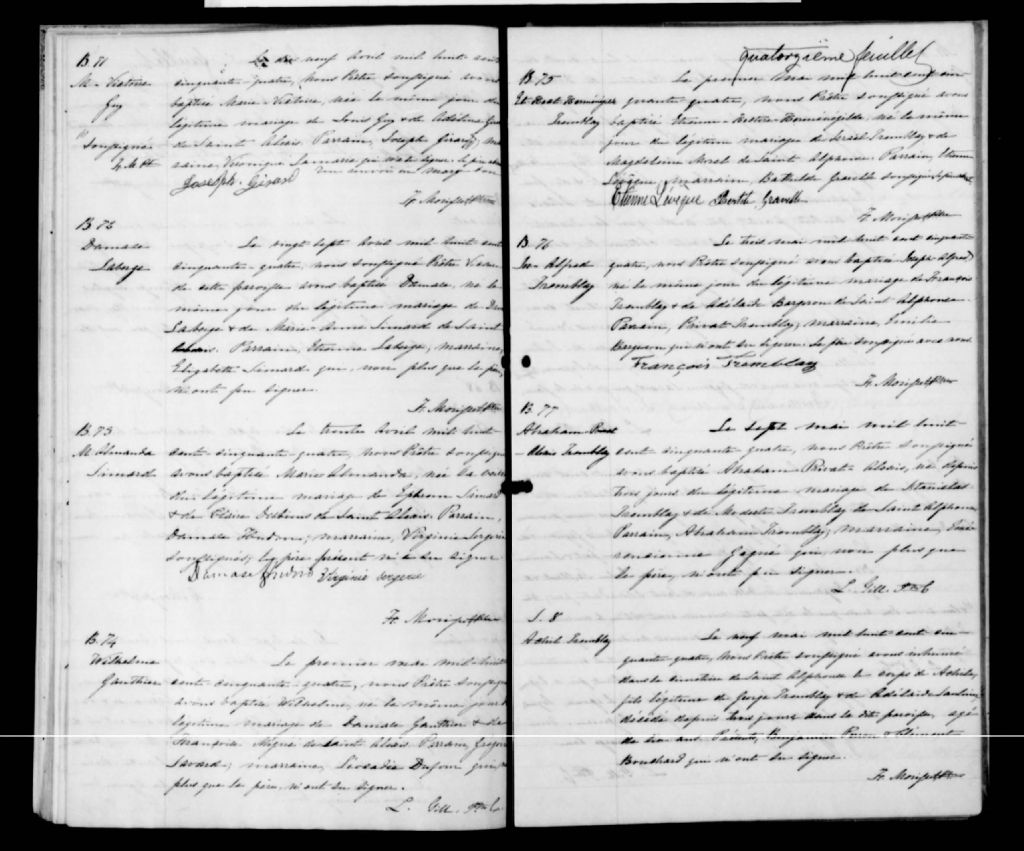 B. 71
M. Victoire
Guy
Soussignée
F. M. Ptre
Le dix neuf Avril mil huit cent
cinquante-quatre, Nous Prêtre soussigné avons
baptisé Marie Victoire, née le même jour du
légitime mariage de Louis Guy & de Adeline
de Saint Alexis. Parrain, Joseph Girard;
raine, Véronique Simard qui
Joseph Girard
un renvoi en marge bon
F. Morisset Ptre
B. 72
Damase
Laberge
Le vingt sept Avril mil huit cent
cinquante-quatre, nous soussigné Prêtre
de cette paroisse avons baptisé Damase, né le
même jour du légitime mariage de
Laberge & de Marie Anne Simard de Saint
Parrain, Etienne Laberge, marraine,
Elizabeth Simard qui, non plus que le père,
n'ont pu signer.
F. Morisset Ptre
B. 73
M. Almanda
Simard
Le trente Avril mil huit
cent cinquante quatre, nous Prêtre soussigné
avons baptisé Marie Almanda, née la
du légitime mariage de Ephrem Simard
& de de Saint Alexis. Parrain,
Damase; marraine, Virginie
soussignés, le père présent n'a su signer
Damase Virginie
F. Morisset Ptre
B. 74
Wilhelmine
Gauthier
Le premier mai mil-huit
cent cinquante-quatre, nous Prêtre soussigné
avons baptisé Wilhelmine, née le même jour du
légitime mariage de Damase Gauthier & de
Françoise de Saint Alexis. Parrain, Grégoire
Savard; marraine, Léocadie Dufour qui, non
plus que le père, n'ont su signer.
L. Gill. Ptre
quatorzième feuillet
B. 75
Et. Herménégilde
Tremblay
Le premier mai mil huit cent cin-
quante quatre, nous Prêtre soussigné avons
baptisé Etienne Herménégilde, né le même
jour du légitime mariage de Israël Tremblay & de
Magdeleine Morel de Saint Alphonse. Parrain, Etienne
Lévêque, marraine, Bathilde Gravelle
Etienne Lévêque Gravelle
F. Morisset Ptre
B. 76
Jos. Alfred
Tremblay
Le trois mai mil huit cent cinquante
quatre, nous Prêtre soussigné avons baptisé Joseph Alfred
né le même jour du légitime mariage de François
Tremblay & de Adélaïde Bergeron de Saint Alphonse.
Parrain, Privat Tremblay, marraine, Emilie
Bergeron qui n'ont su signer. Le père soussigné avec nous
François Tremblay
F. Morisset Ptre
B. 77
Abraham Privat
Alexis Tremblay
Le sept mai mil huit
cent cinquante quatre, nous Prêtre soussigné
avons baptisé Abraham Privat Alexis, né depuis
trois jours du légitime mariage de Stanislas
Tremblay & de Modeste Tremblay de Saint Alphonse
Parain, Abraham Tremblay; marraine,
Gagné qui, non plus que
le père, n'ont pu signer.
L. Gill. Ptre
S. 8
Achil Tremblay
Le neuf mai mil huit cent cin-
quante quatre, Nous Prêtre soussigné avons inhumé
dans le cimetière de Saint Alphonse le corps de Achile,
fils légitime de George Tremblay & de Adélaïde
décédé depuis trois jours dans la dite paroisse, agé
de ans. Présents, Benjamin & Clément
Bouchard qui n'ont su signer.
F. Morisset Ptre